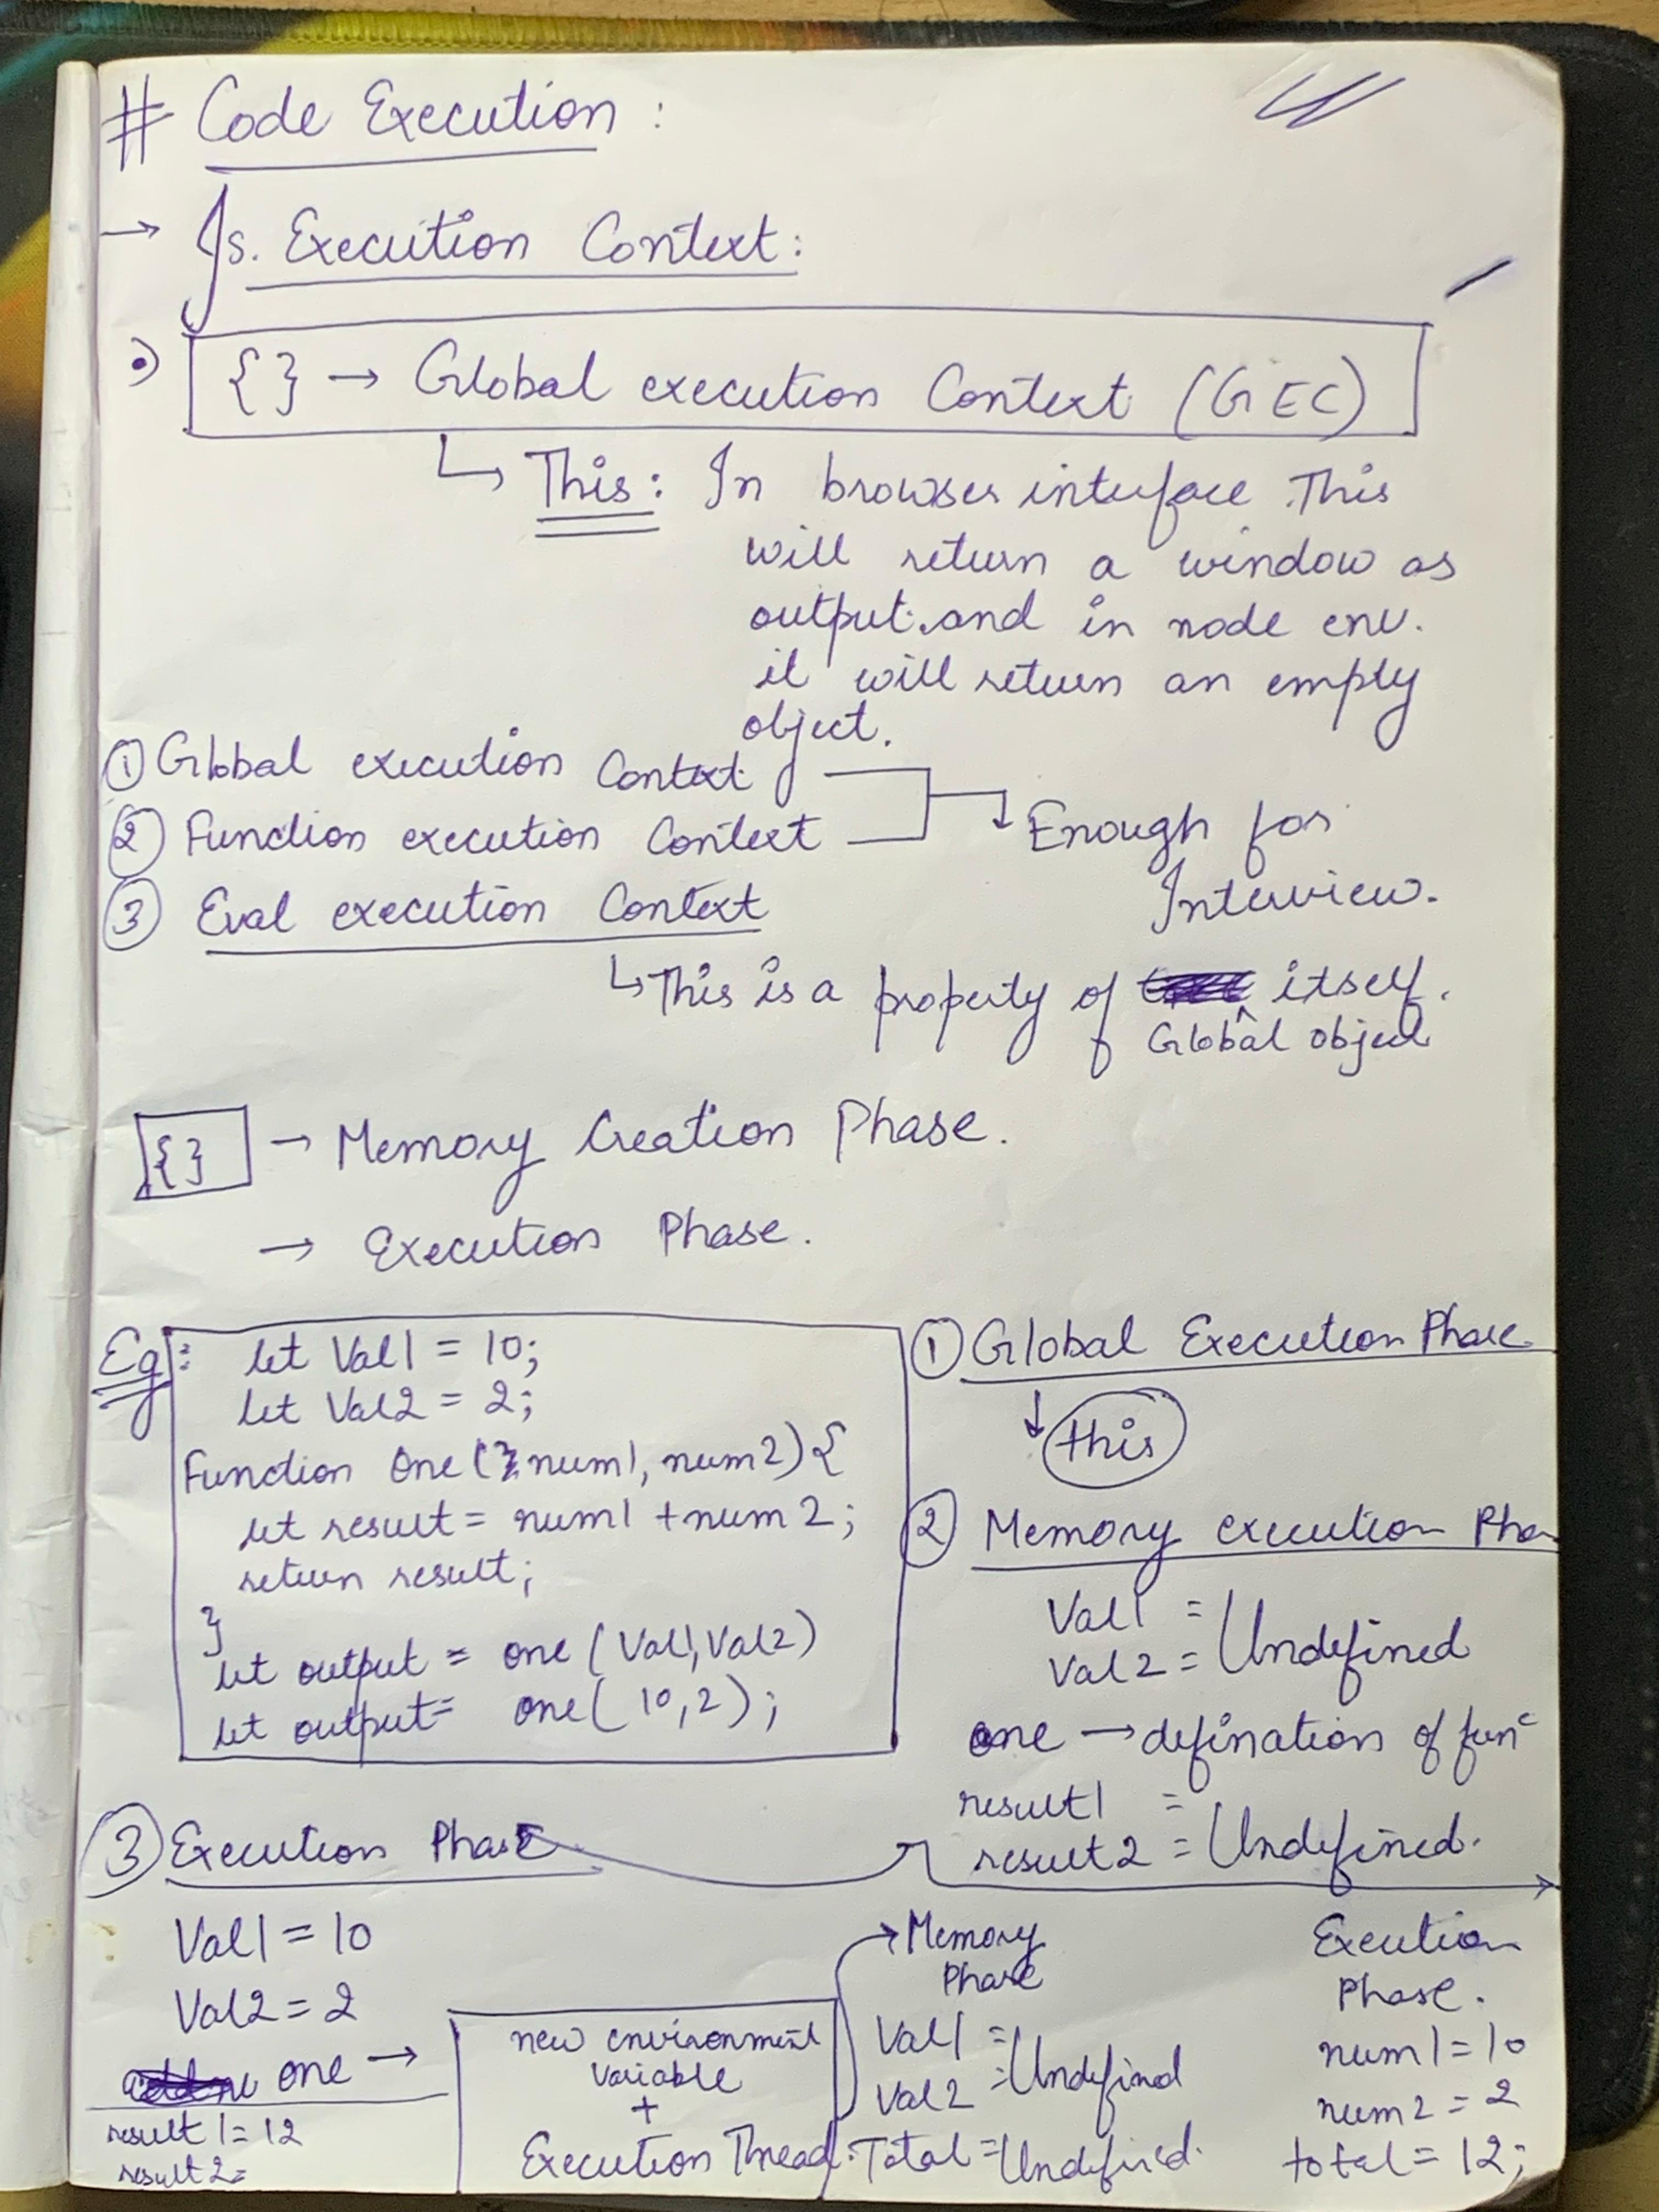 # Code Execution :
→ Js. Execution Context :
•) {} → Global execution Context (GEC)
↳ This : In browser interface This
will return a window as
output. and in node env.
it will return an empty
object.
① Global execution Context
② Function execution Context
Enough for
Interview.
③ Eval execution Context
↳ This is a property of itself.
Global object
{} → Memory Creation Phase.
→ Execution Phase.
Eg : let Val1 = 10;
let Val2 = 2;
Function One ( num1, num2) {
let result = num1 + num2;
return result;
}
let output = one (Val1, Val2)
let output = one( 10, 2);
① Global Execution Phase
↓ this
② Memory execution Pha
Val1 =
Val2 = Undefined
one → defination of funᶜ
result1 =
result2 = Undefined.
③ Execution Phase
Val1 = 10
Val2 = 2
one →
result 1 = 12
result 2 =
new environment
variable
+
Execution Thread.
→ Memory
Phase
Val1 =
Val2 = Undefined
Total = Undefined.
Exeution
Phase.
num1 = 10
num2 = 2
total = 12;